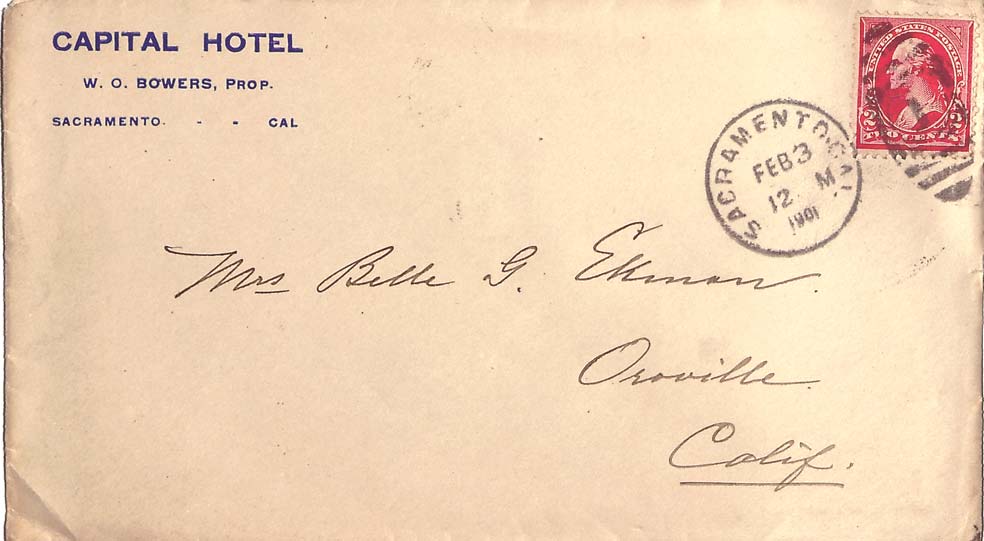 CAPITAL HOTEL
W. O. BOWERS, PROP.
SACRAMENTO. - - CAL
UNITED STATES POSTAGE
2 TWO CENTS 2
SACRAMENTO, CAL.
FEB 3
12 M
1901
Mrs Belle G. Ekman.
Oroville.
Calif.